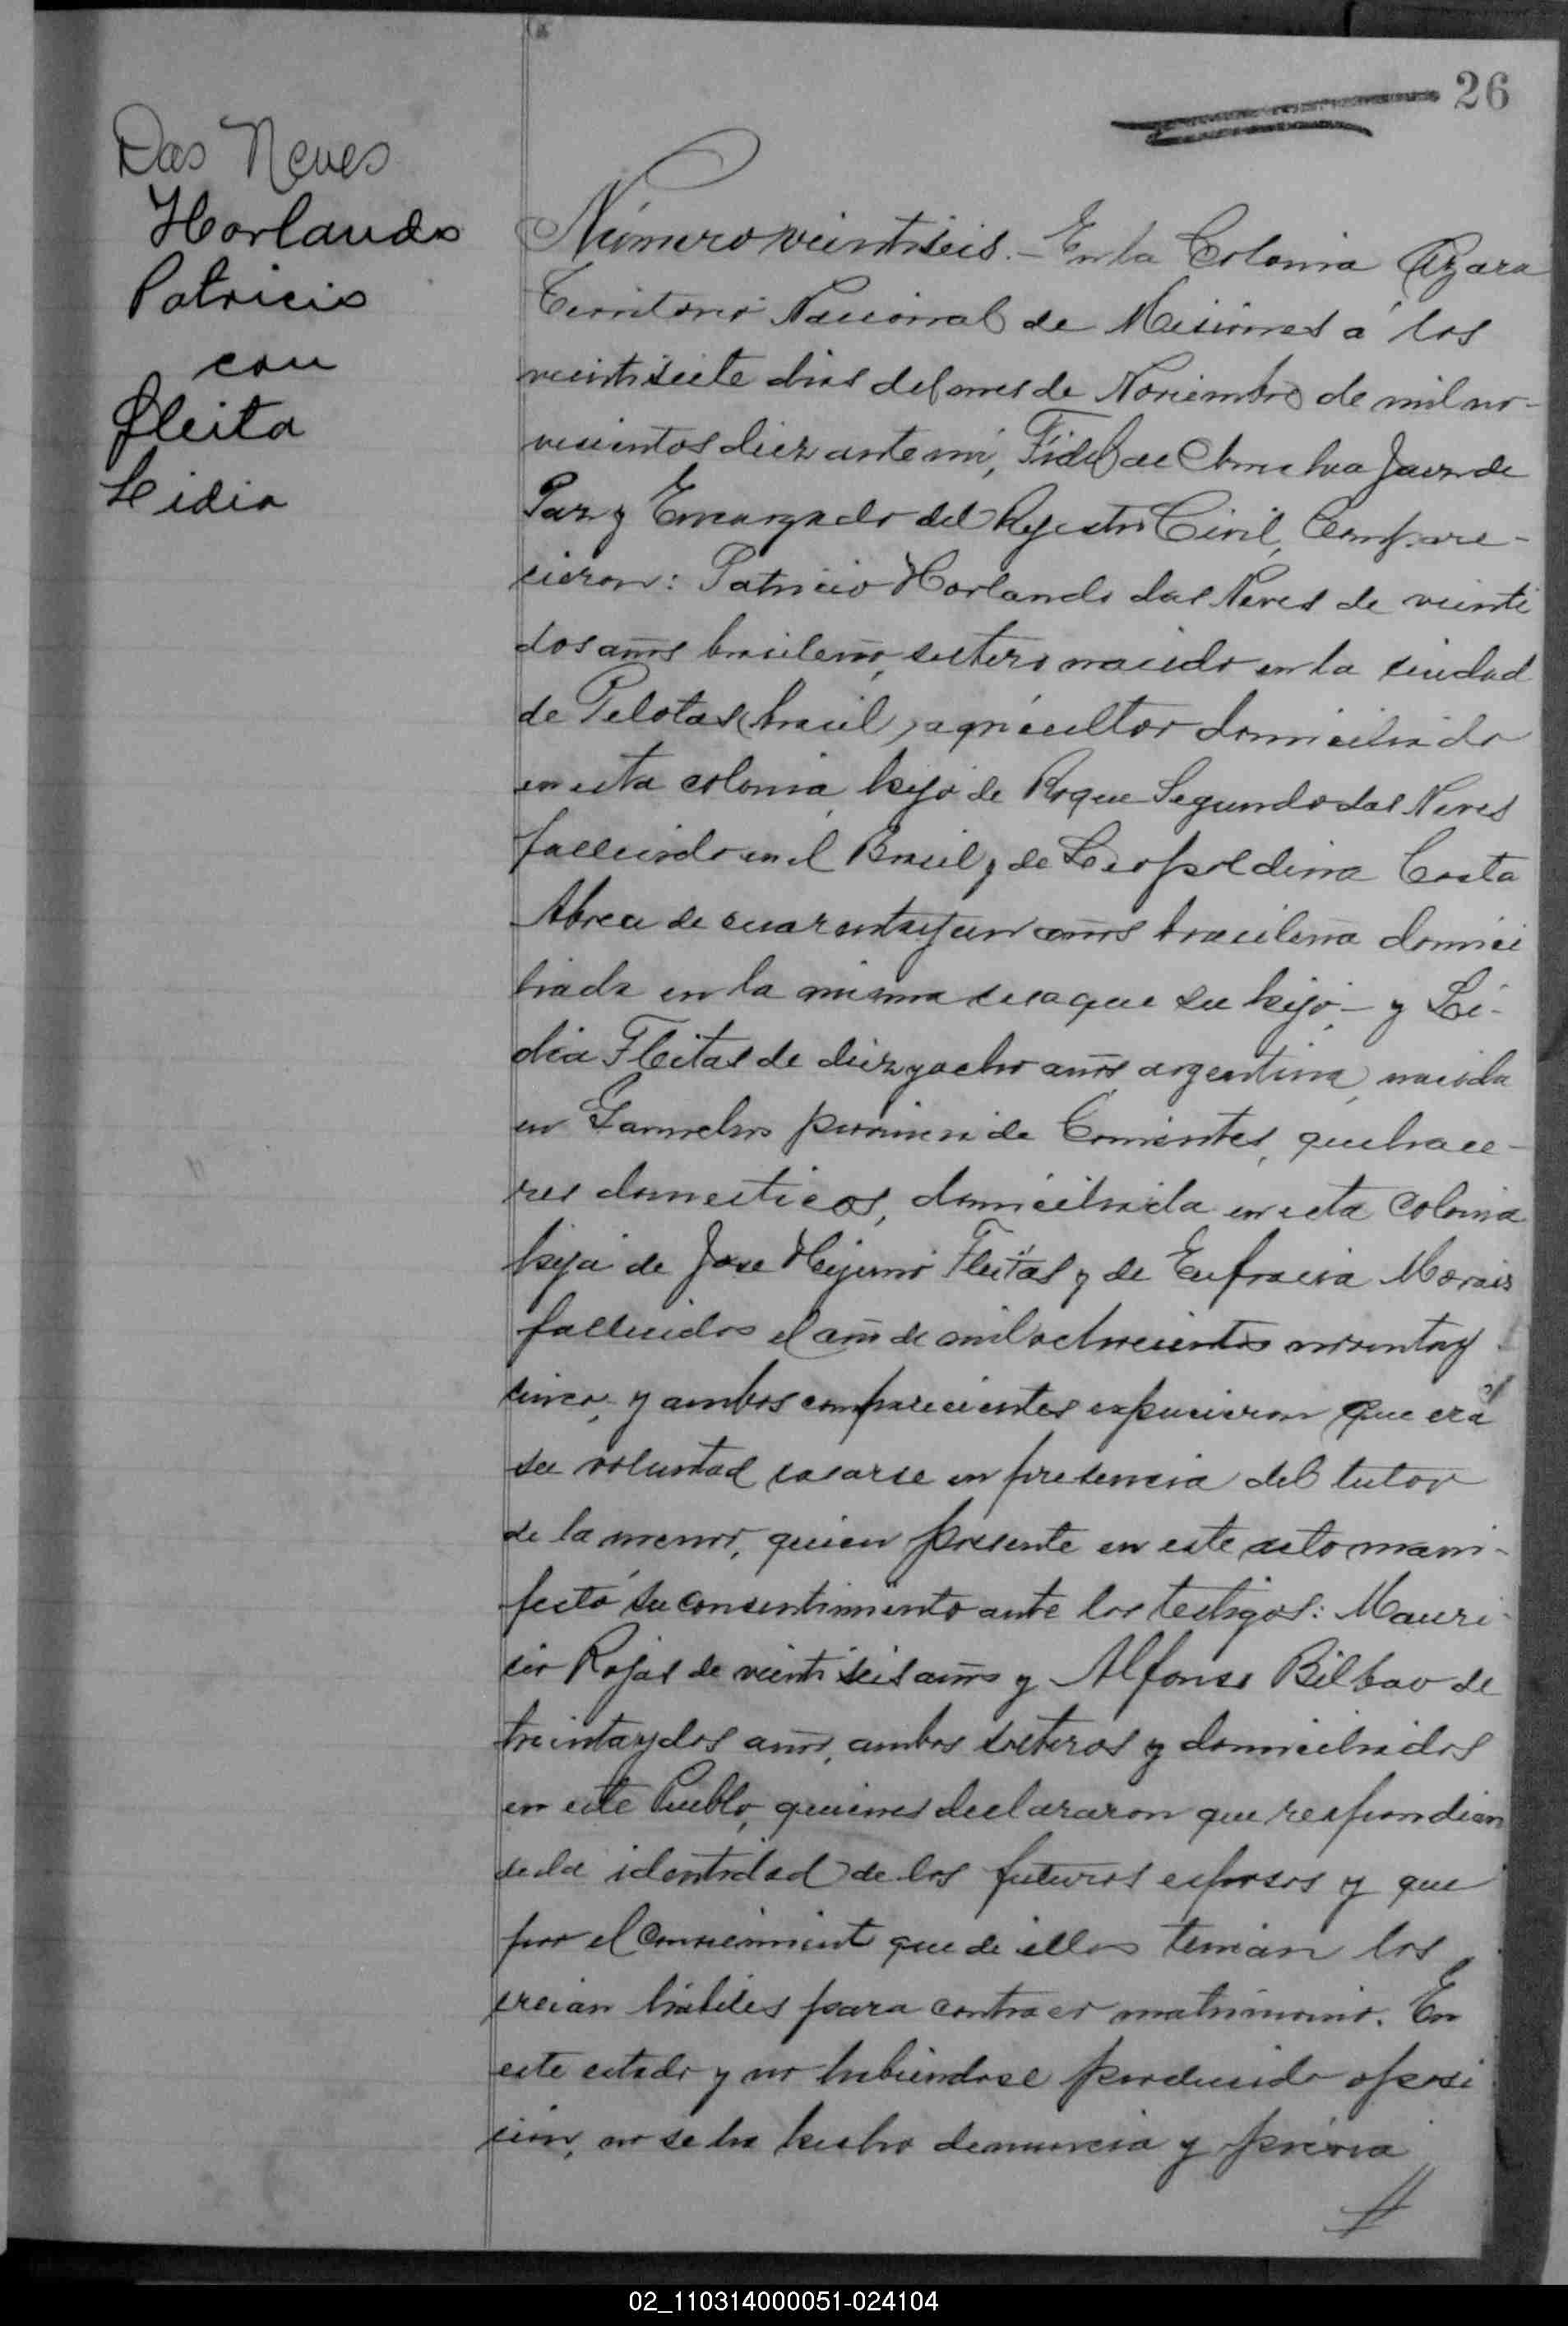 26
Das Neves
Horlando
Patricio
con
fleita
Lidia
Número veintiseis.- En la Colonia Azara
Territorio Nacional de Misiones á los
veintisiete dias del mes de Noviembre de mil no-
vecientos diez ante mi, Fidel de Juez de
Paz y Encargado del Rejistro Civil, Compare-
cieron: Patricio Horlando das Neves de veinti
dos años brasilero, soltero nacido en la ciudad
de Pelotas (brasil), agricultor domiciliado
en esta colonia, hijo de Roque Segundo das Neves
fallecido en el Brasil y de Leopoldina Costa
Abreu de cuarentayun años brasilera domici
liada en la misma casa que su hijo - y Li-
dia Fleitas de diez y ocho años argentina, nacida
en Garruchos provincia de Corrientes, quehace-
res domesticos, domiciliada en esta Colonia
hija de Jose Fleitas y de Eufracia Morais
fallecidos el año de mil ochocientos noventay
cinco, y ambos comparecientes expusieron que era
su voluntad casarse en presencia del tutor
de la menor, quien presente en este acto mani-
festó su consentimiento ante los testigos: Mauri-
cio Rojas de veintiseis años y Alfonso Bilbao de
treintaydos años, ambos solteros y domiciliados
en este Pueblo, quienes declararon que respondian
de la identidad de los futuros esposos y que
por el conocimient que de ellos tenian los
creian hábiles para contraer matrimonio. En
este estado y no habiendose producido oposi
cion, no se ha hecho denuncia y prévia
02_110314000051-024104